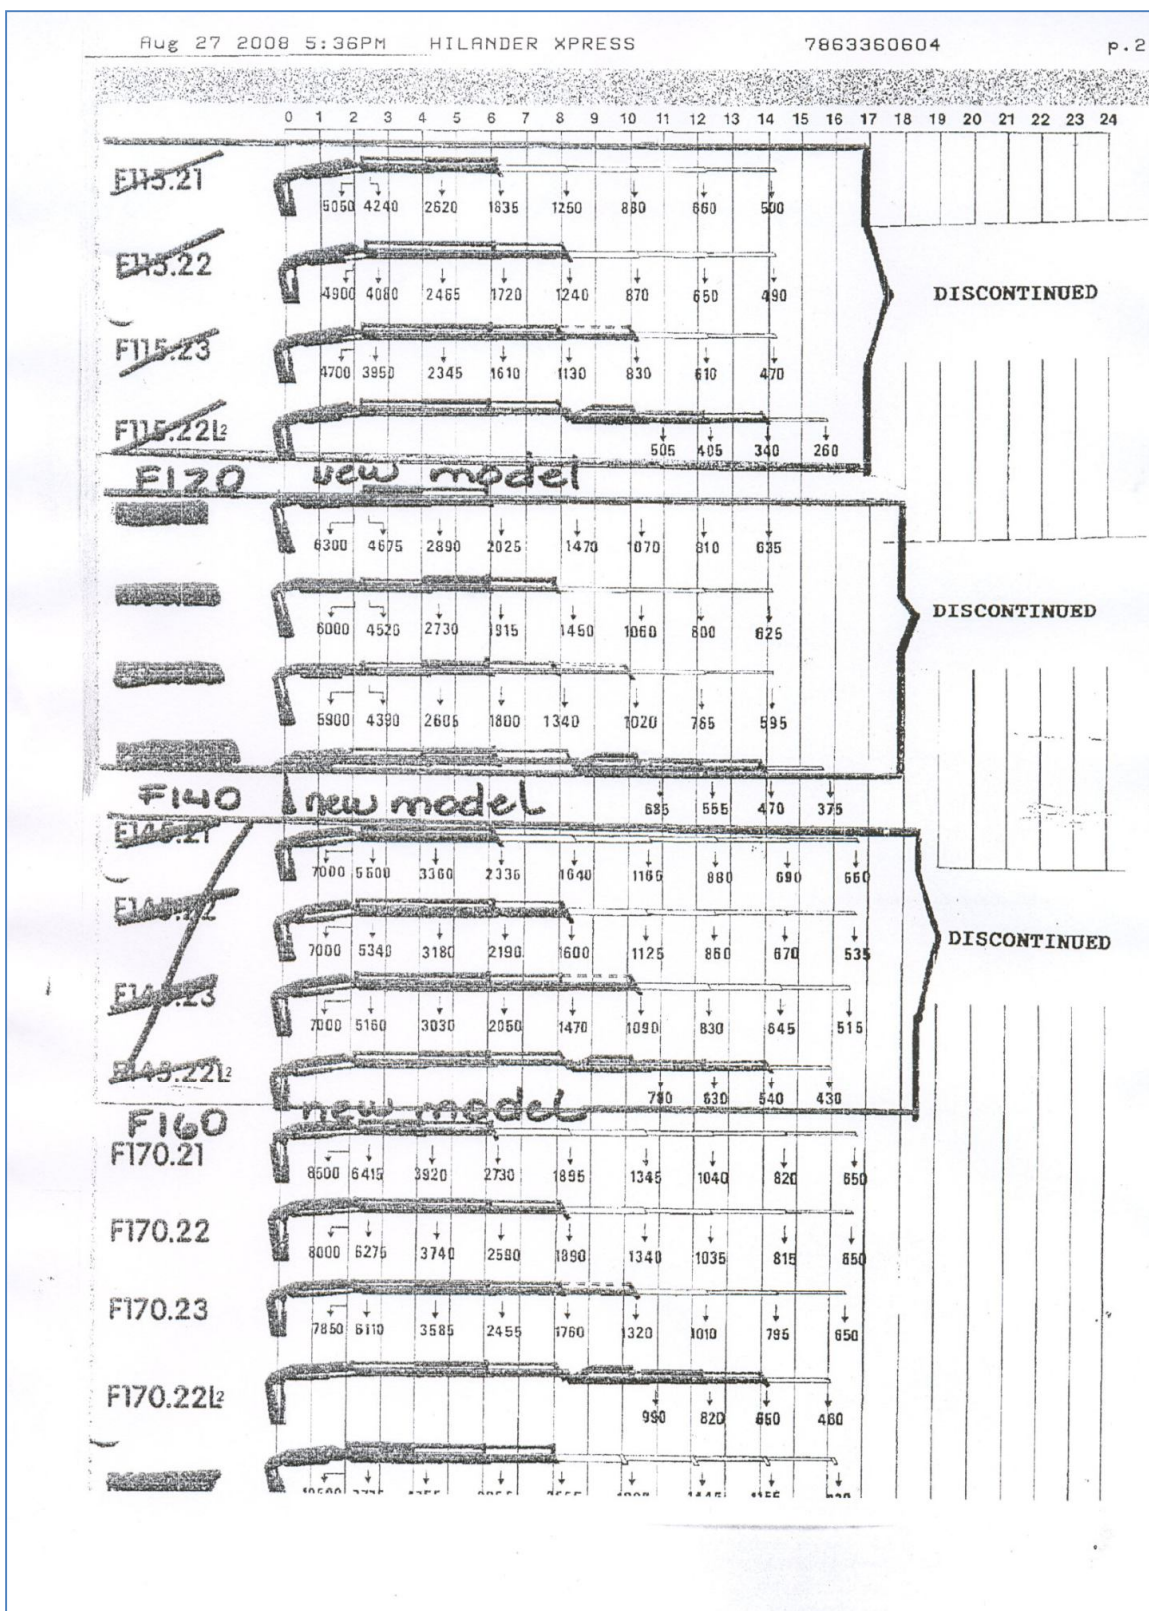 Aug 27 2008 5:36PM HILANDER XPRESS 7863360604 p.2
0 1 2 3 4 5 6 7 8 9 10 11 12 13 14 15 16 17 18 19 20 21 22 23 24
F115.21
5050 4240 2620 1835 1250 880 660 500
F115.22
4900 4080 2465 1720 1240 870 650 490
DISCONTINUED
F115.23
4700 3950 2345 1610 1130 830 610 470
F115.22L²
505 405 340 260
F120 new model
6300 4675 2890 2025 1470 1070 810 635
6000 4520 2730 1915 1450 1060 800 625
DISCONTINUED
5900 4390 2605 1800 1340 1020 765 595
685 555 470 375
F140 new model
F145.21
7000 5500 3360 2335 1640 1165 880 690
F145.22
7000 5340 3180 2190 1600 1125 860 670 535
DISCONTINUED
F145.23
7000 5160 3030 2050 1470 1090 830 645 515
F145.22L²
630 540 430
F160 new model
F170.21
8500 6415 3920 2730 1895 1345 1040 820 650
F170.22
8000 6275 3740 2590 1890 1340 1035 815 650
F170.23
7850 6110 3585 2455 1760 1320 1010 795 650
F170.22L²
990 820 460